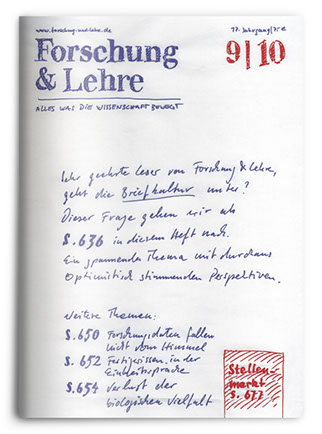 www.forschung-und-lehre.de
17. Jahrgang | 7,- €
Forschung
& Lehre
9|10
ALLES WAS DIE WISSENSCHAFT BEWEGT
Sehr geehrte Leser von Forschung & Lehre,
geht die Briefkultur unter?
Dieser Frage gehen wir ab
S. 636 in diesem Heft nach.
Ein spannendes Thema mit durchaus
optimistisch stimmenden Perspektiven.
Weitere Themen:
S. 650 Forschungsdaten fallen
nicht vom Himmel
S. 652 Festgesessen in der
Einheitssprache
S. 654 Verlust der
biologischen Vielfalt
Stellen-
markt
S. 677